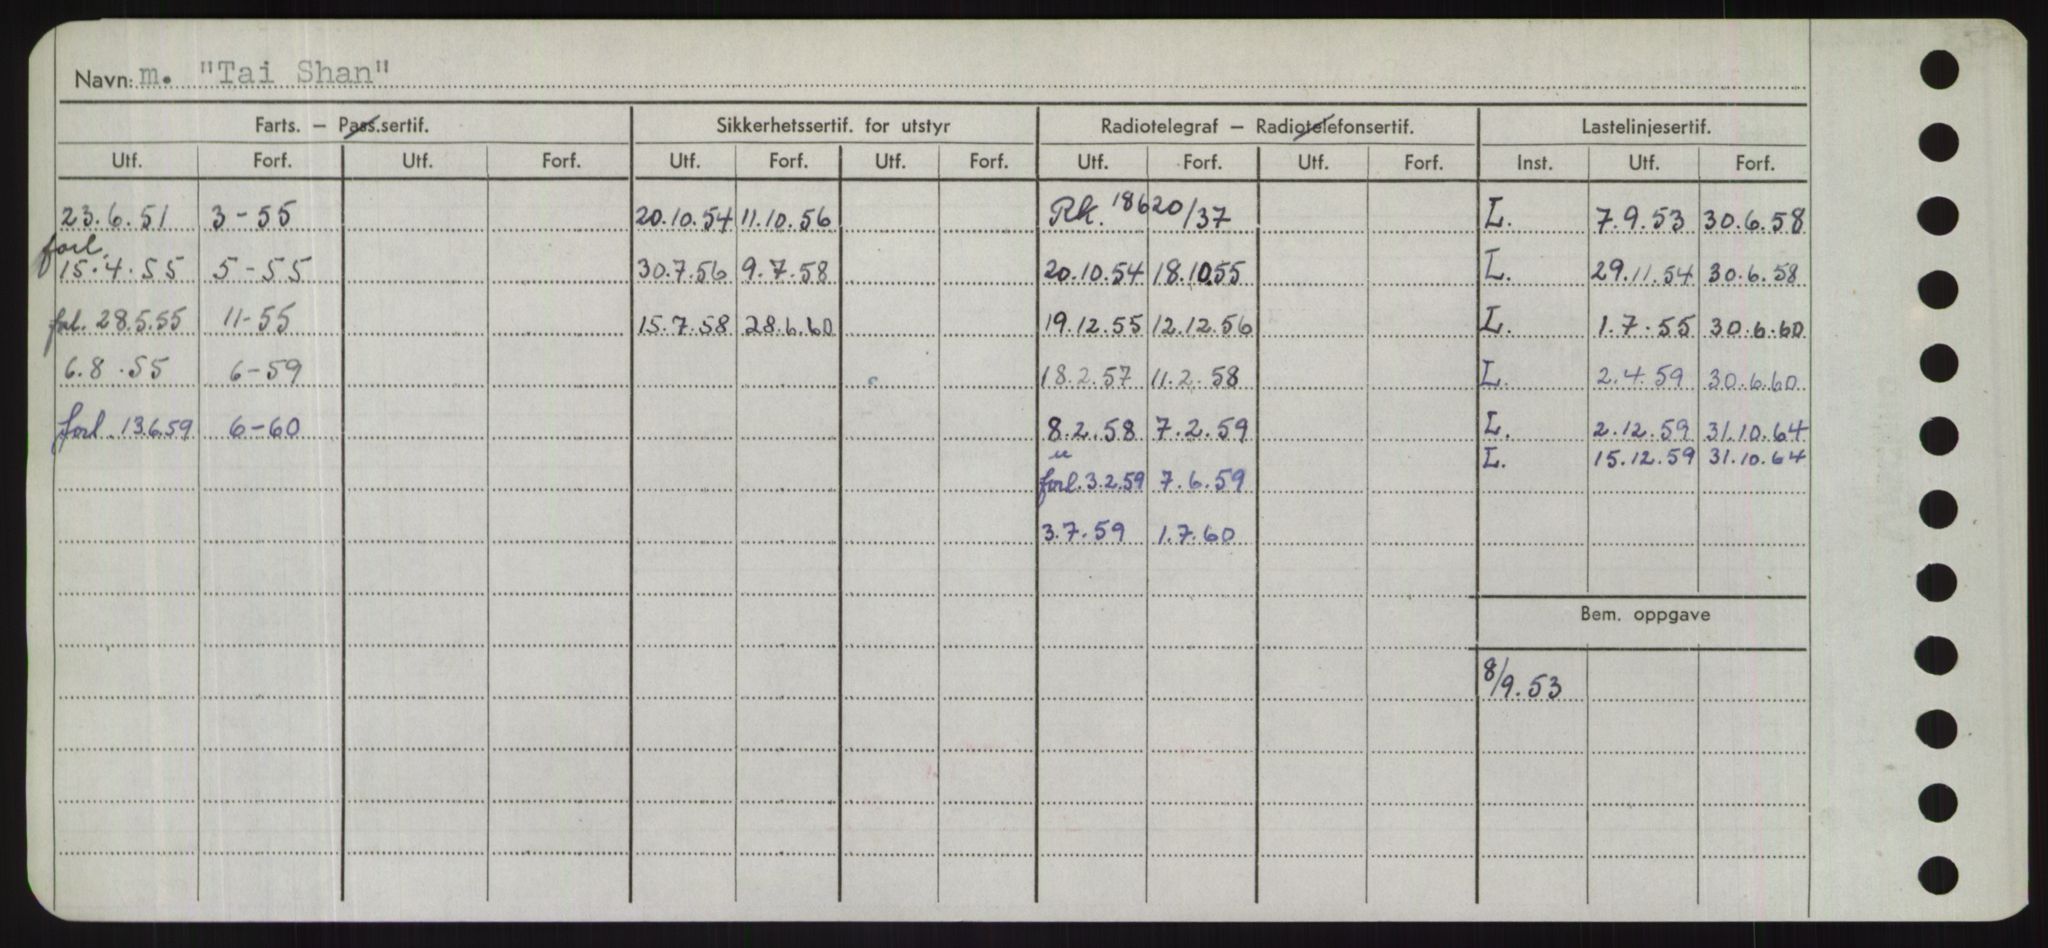 Navn: m. "Tai Shan"
Farts. – Pass.sertif. Sikkerhetssertif. for utstyr Radiotelegraf – Radiotelefonsertif. Lastelinjesertif.
Utf. Forf. Utf. Forf. Utf. Forf. Utf. Forf. Utf. Forf. Utf. Forf. Inst. Utf. Forf.
23.6.51 3-55 20.10.54 11.10.56 Rk. 18620/37 L. 7.9.53 30.6.58
forl. 15.4.55 5-55 30.7.56 9.7.58 20.10.54 18.10.55 L. 29.11.54 30.6.58
forl. 28.5.55 11-55 15.7.58 28.6.60 19.12.55 12.12.56 L. 1.7.55 30.6.60
6.8.55 6-59 18.2.57 11.2.58 L. 2.4.59 30.6.60
forl. 13.6.59 6-60 8.2.58 7.2.59 L. 2.12.59 31.10.64
L. 15.12.59 31.10.64
forl. 3.2.59 7.6.59
3.7.59 1.7.60
Bem. oppgave
8/9.53